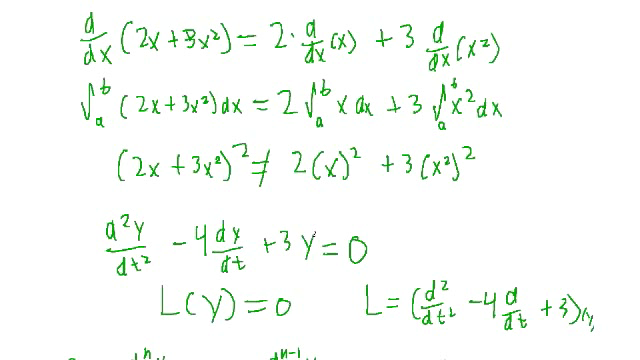 d/dx (2x + 3x²) = 2 · d/dx (x) + 3 d/dx (x²)
∫_a^b (2x + 3x²) dx = 2 ∫_a^b x dx + 3 ∫_a^b x² dx
(2x + 3x²)² ≠ 2(x)² + 3(x²)²
d²y/dt² - 4 dy/dt + 3y = 0
L(y) = 0 L = (d²/dt² - 4 d/dt + 3)(y)